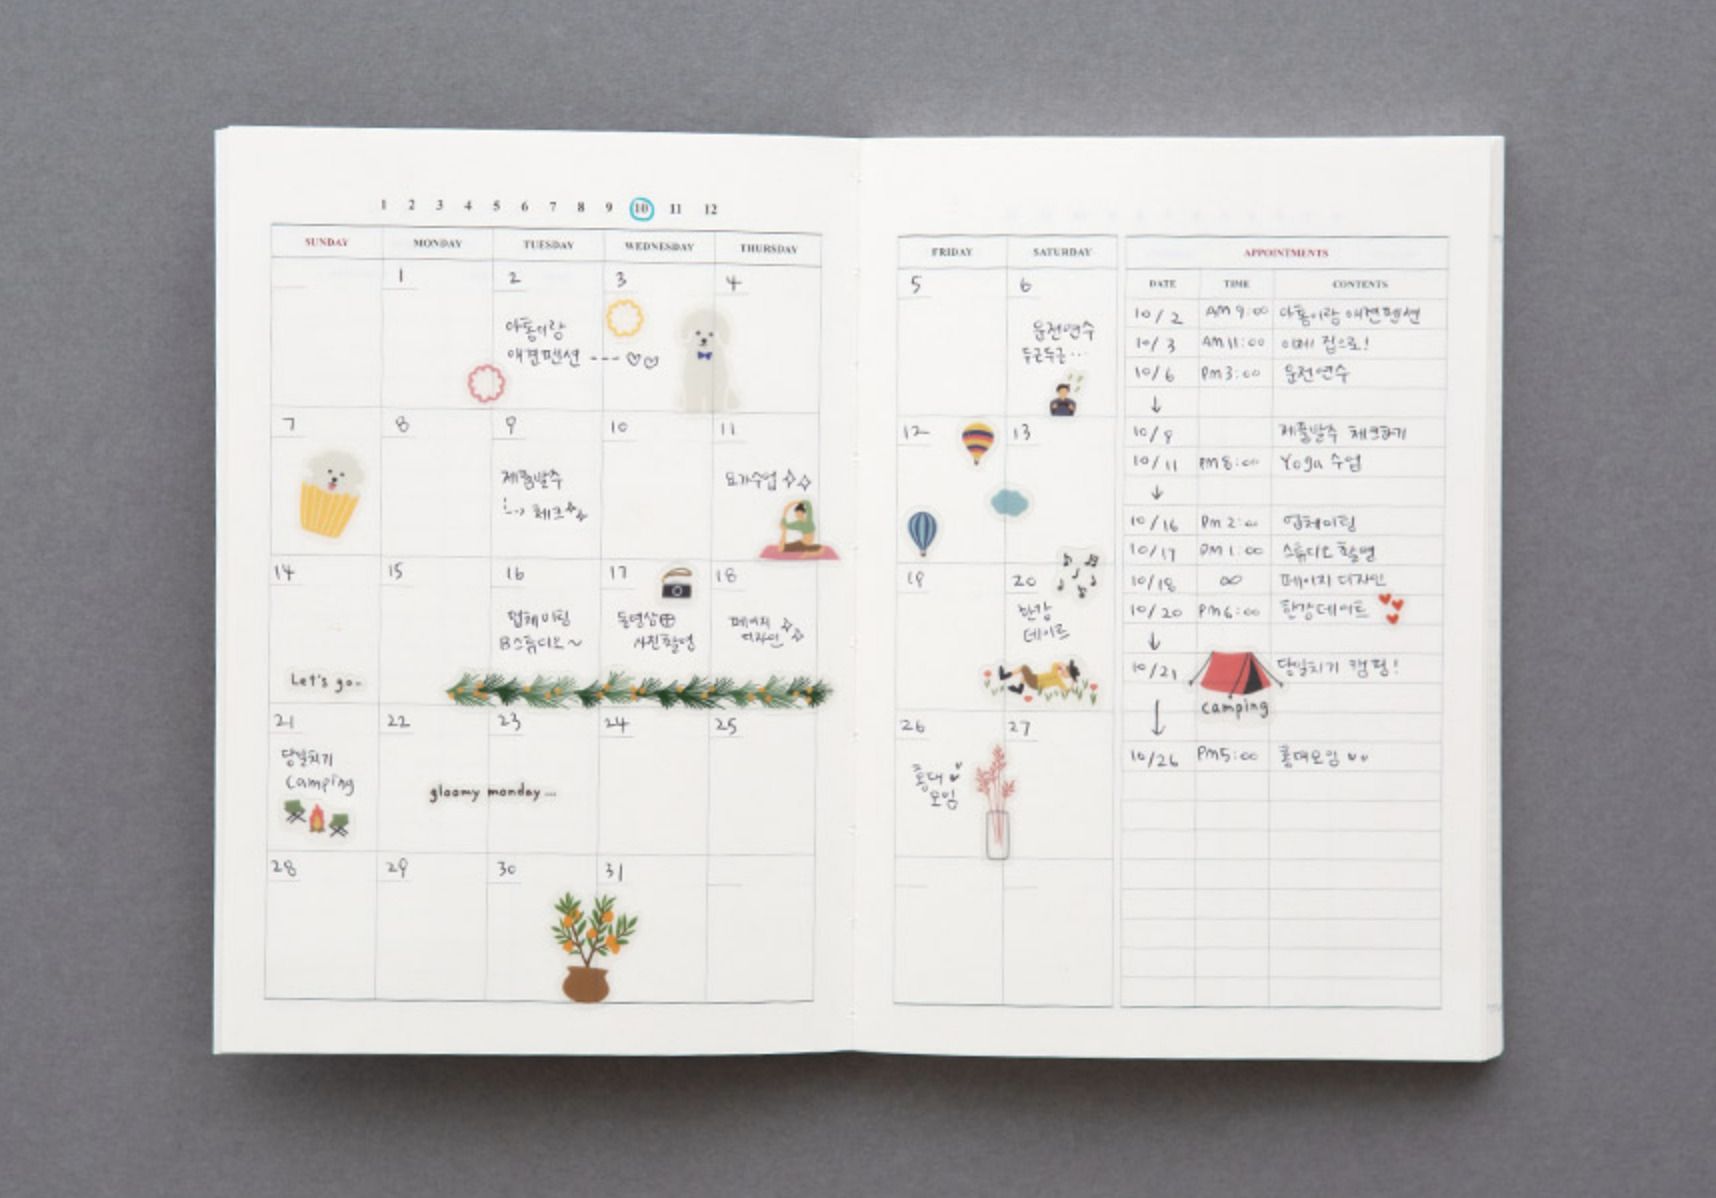 1 2 3 4 5 6 7 8 9 10 11 12
SUNDAY MONDAY TUESDAY WEDNESDAY THURSDAY
1 2 3 4
아롱이랑
애견펜션
7 8 9 10 11
제품발주
체크
요가수업
14 15 16 17 18
업체미팅
B스튜디오~
동영상
사진촬영
페이지
디자인
Let's go-
21 22 23 24 25
당일치기
camping
gloomy monday...
28 29 30 31
FRIDAY SATURDAY
5 6
운전연수
두근두근...
12 13
19 20
한강
데이트
26 27
홍대
모임
APPOINTMENTS
DATE TIME CONTENTS
10/2 AM 9:00 아롱이랑 애견펜션
10/3 AM 11:00 집으로!
10/6 PM 3:00 운전연수
↓
10/9 제품발주 체크하기
10/11 PM 8:00 Yoga 수업
↓
10/16 PM 2:00 업체미팅
10/17 PM 1:00 스튜디오 촬영
10/18 ∞ 페이지 디자인
10/20 PM 6:00 한강데이트
↓
10/21 당일치기 캠핑!
camping
↓
10/26 PM 5:00 홍대모임